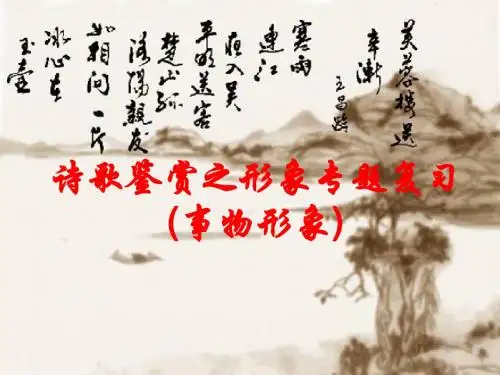 芙蓉樓送
辛漸
王昌齡
寒雨
連江
夜入吴
平明送客
楚山孤
洛陽親友
如相问一片
冰心在
玉壺
诗歌鉴赏之形象专题复习
(事物形象)